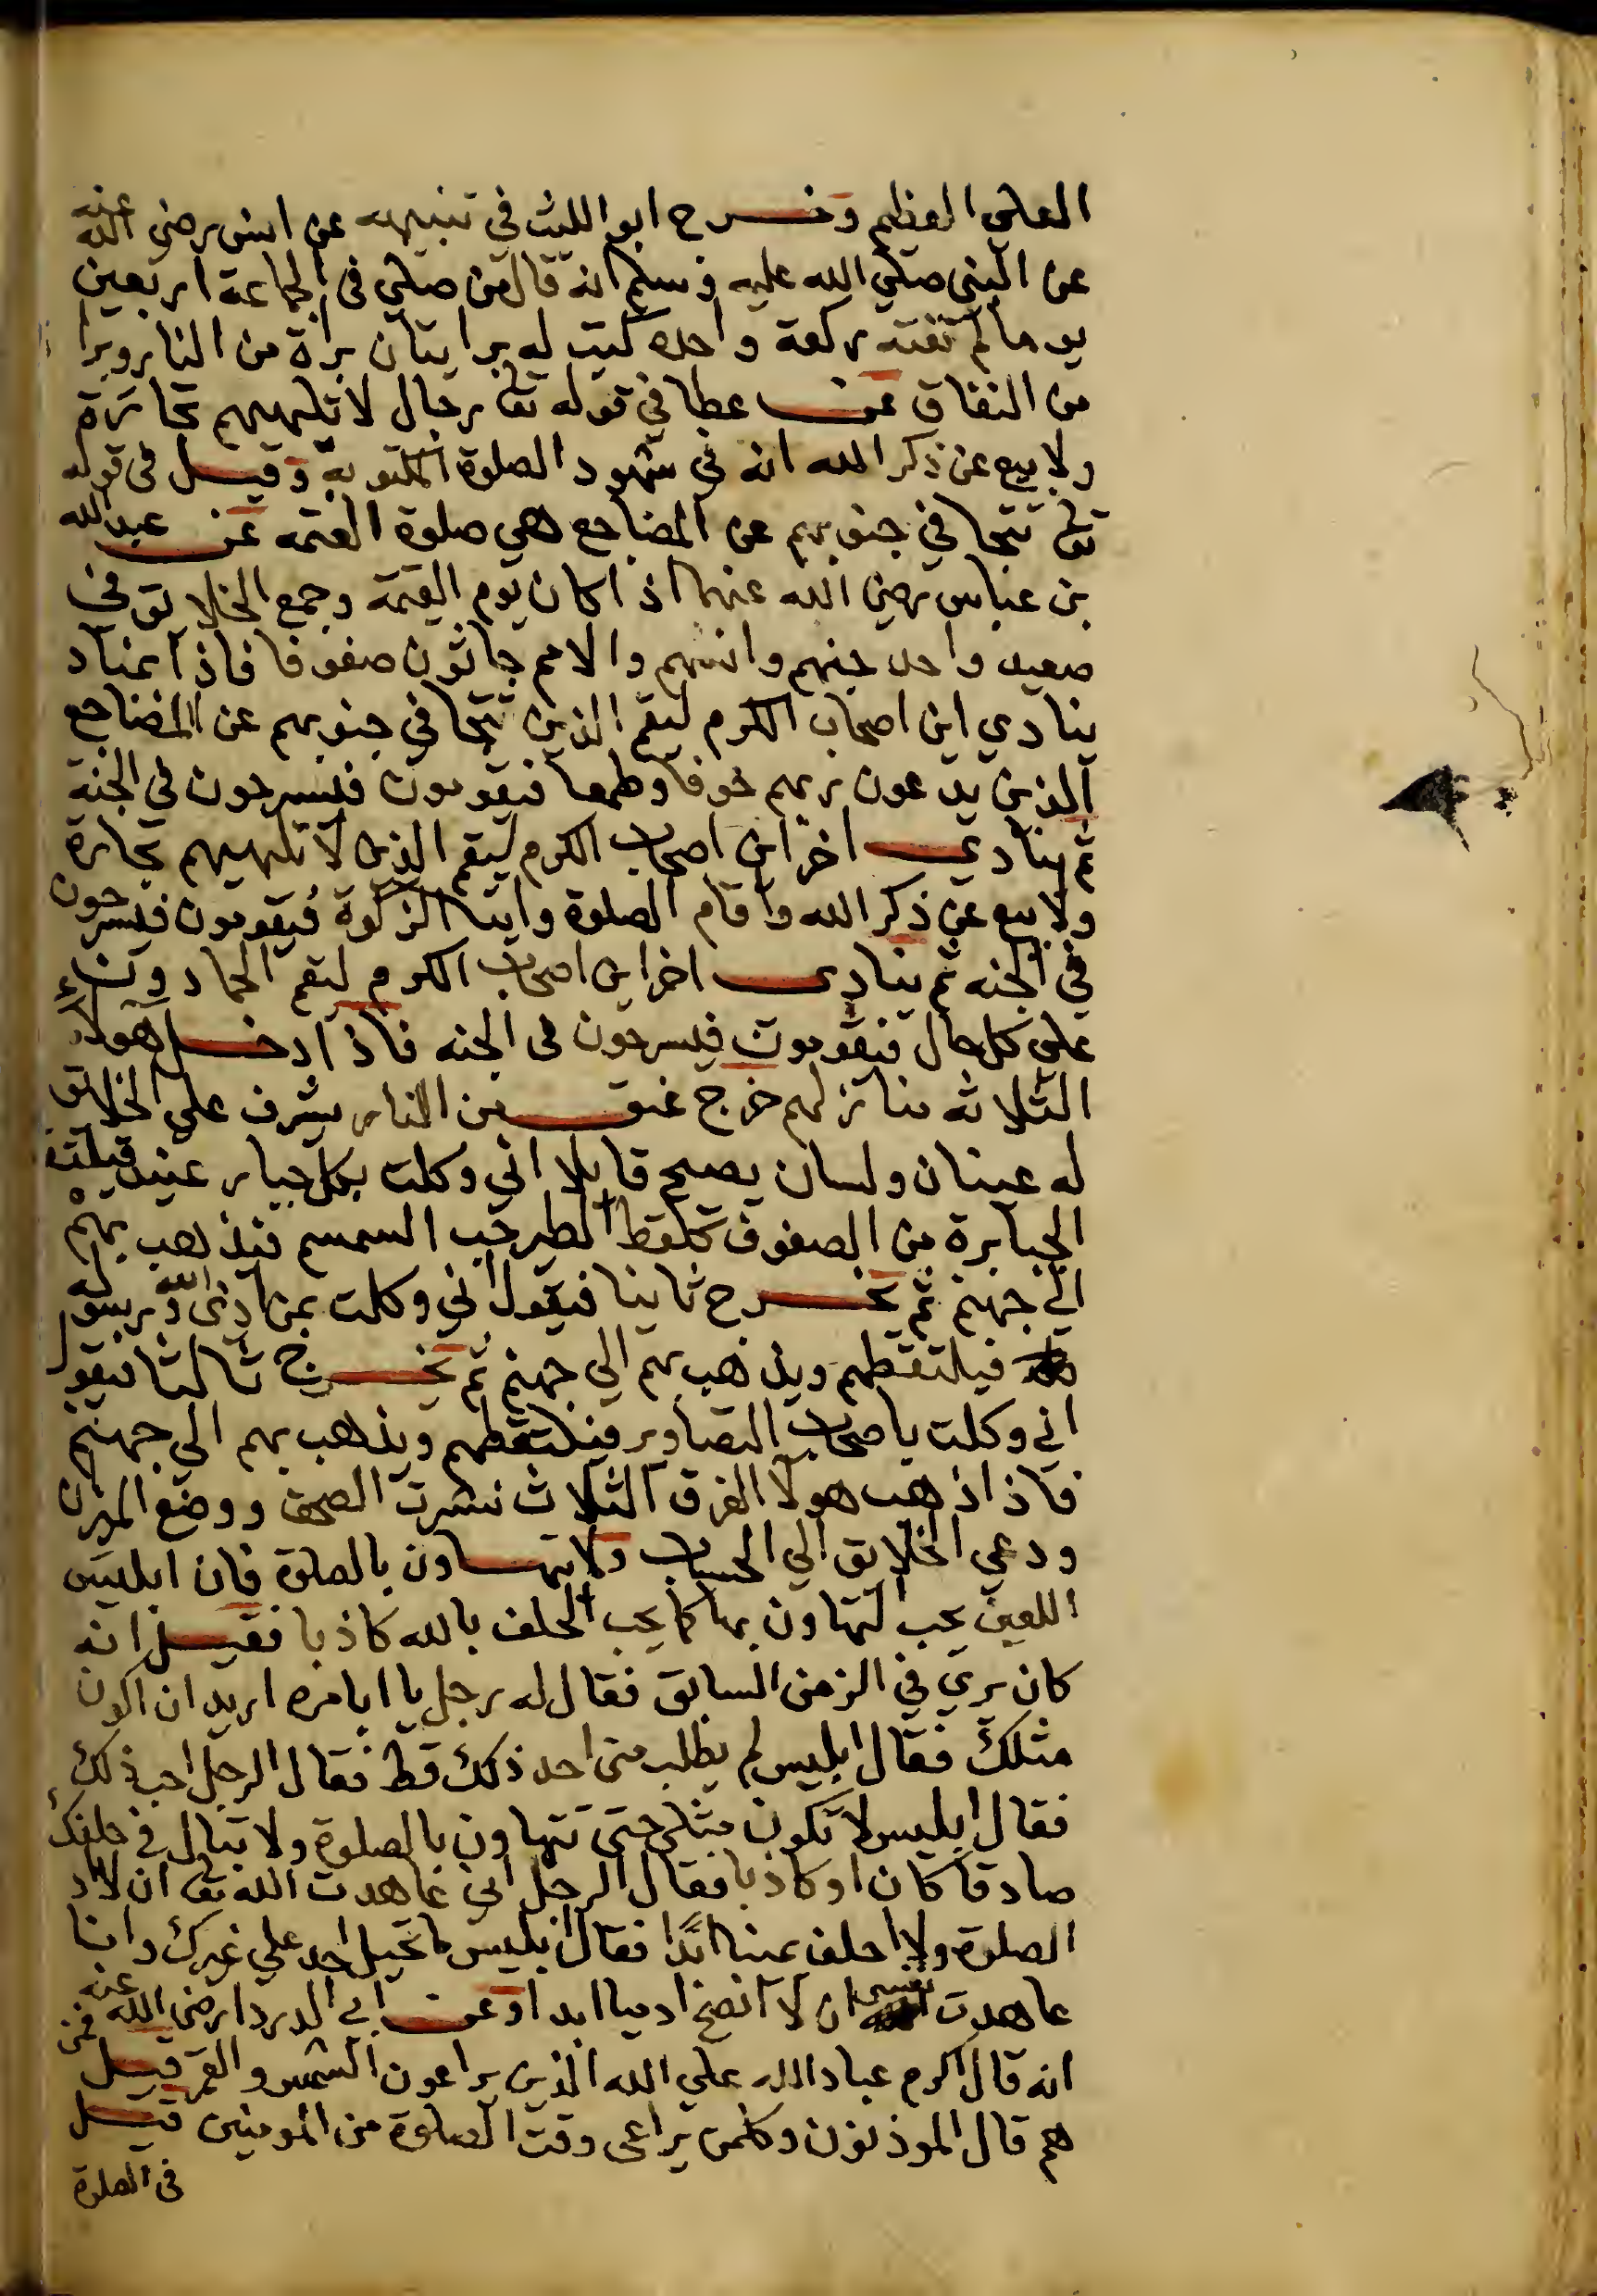 العلي العظيم وخرج ابو الليث في تنبيهه عن انس رضى الله عنه
عن النبي صلي الله عليه وسلم انه قال من صلي في الجماعة اربعين
يوما لم تفته ركعة واحده كتب له برايتان براة من النار وبرا
من النفاق عن عطا في قوله تعا رجال لا تلهيهم تجارة
ولا بيع عن ذكر الله انه في شهود الصلوة المكتوبة وقيل في قوله
تعا تتجافي جنوبهم عن المضاجع هي صلوة العتمه عن عبد الله
بن عباس رضي الله عنهما اذا كان يوم القيمة وجمع الخلايق في
صعيد واحد جنهم وانسهم والامم جاثون صفوفا فاذا بمناد
ينادي اين اصحاب الكرم ليقم الذين تتجافي جنوبهم عن المضاجع
الذين يدعون ربهم خوفا وطمعا فيقومون فيسرحون في الجنة
ثم ينادي اخر اين اصحاب الكرم ليقم الذين لا تلهيهم تجارة
ولا بيع عن ذكر الله واقام الصلوة وايتا الزكوة فيقومون فيسرحون
في الجنه ثم ينادى اخر اين اصحاب الكرم ليقم الحمادون لله
علي كل حال فيقومون فيسرحون في الجنه فاذا دخل هولاء
الثلاثه منازلهم خرج عنق من النار يشرف علي الخلايق
له عينان ولسان يصيح قايلا اني وكلت بكل جبار عنيد فيلتقط
الجبابرة من الصفوف كلقط الطير حب السمسم فيذهب بهم
الي جهنم ثم يخرج ثانيا فيقول اني وكلت بمن اذى الله ورسوله
فيلتقطهم ويذهب بهم الي جهنم ثم يخرج ثالثا فيقول
اني وكلت باصحاب التصاوير فيلتقطهم ويذهب بهم الي جهنم
فاذا ذهب هولا الفرق الثلاث نشرت الصحف ووضع الميزان
ودعي الخلايق الي الحساب ولا تتهاون بالصلوة فان ابليس
اللعين يحب التهاون بها كما يحب الحلف بالله كاذبا فقيل انه
كان يري في الزمن السابق فقال له رجل يا ابامره اريد ان اكون
مثلك فقال ابليس لم يطلب منى احد ذلك قط فقال الرجل احب ذلك
فقال ابليس لا تكون مثلى حتى تتهاون بالصلوة ولا تبال في حلفك
صادقا كان او كاذبا فقال الرجل اني عاهدت الله تعا ان لا ادع
الصلوة ولا احلف يمينا ابدا فقال ابليس ما تحيل احد علي غيرك وانا
عاهدت نفسي ان لا انصح ادميا ابدا وعن ابي الدردا رضي الله عنه
انه قال اكرم عباد الله علي الله الذين يراعون الشمس والقمر قيل فمن
هم قال الموذنون وكلمن يراعى وقت الصلوة من المومنين قيل
في الصلوة